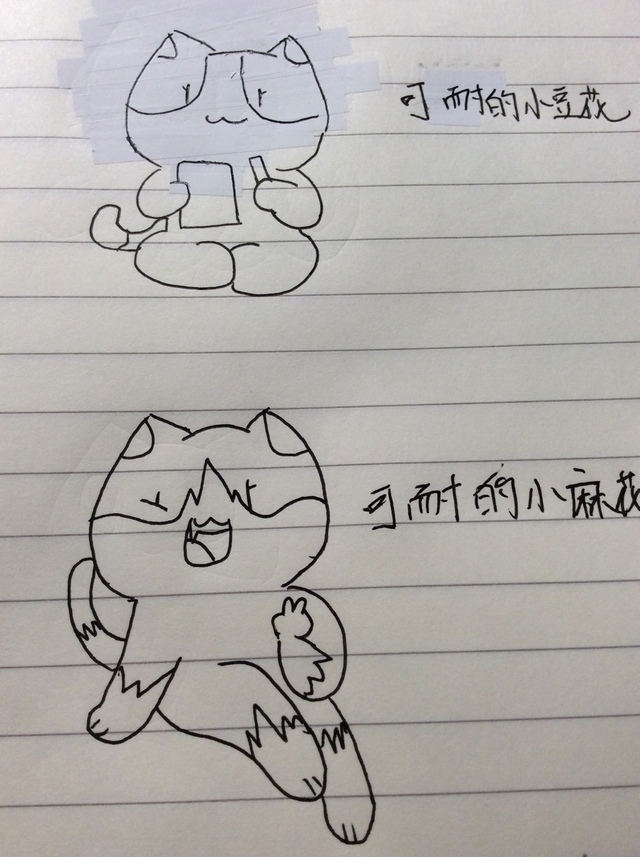 可耐的小豆花
可耐的小麻花